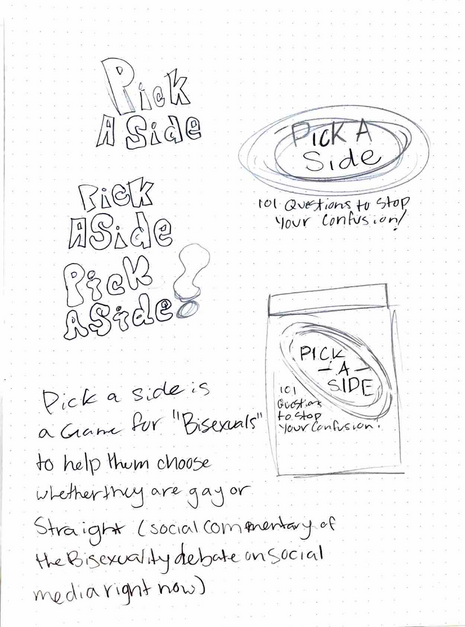 Pick
A Side
Pick
A Side
Pick
A Side!
Pick A
Side
101 Questions to Stop
Your Confusion!
PICK
- A -
SIDE
101
Questions
to Stop
Your Confusion!
Pick a side is
a Game for "Bisexuals"
to help them choose
whether they are gay or
Straight (social commentary of
the Bisexuality debate on social
media right now)